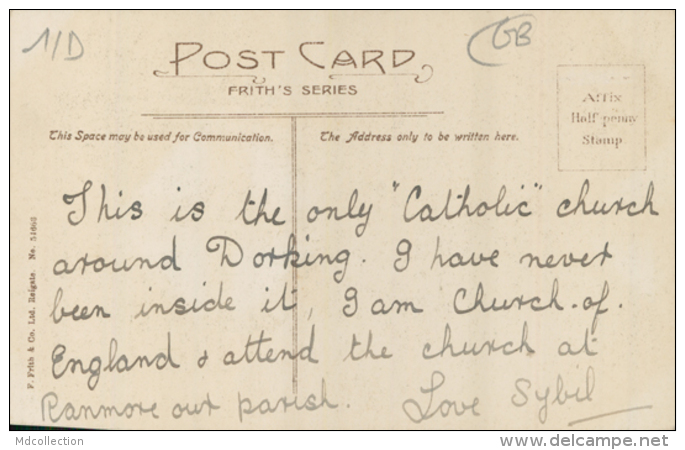 1/D
GB
POST CARD
FRITH'S SERIES
Affix
Half-penny
Stamp
This Space may be used for Communication.
The Address only to be written here.
This is the only "Catholic" church
around Dorking. I have never
been inside it, I am Church-of-
England & attend the church at
Ranmore our parish. Love Sybil
F. Frith & Co. Ltd. Reigate. No.
Mdcollection
www.delcampe.net